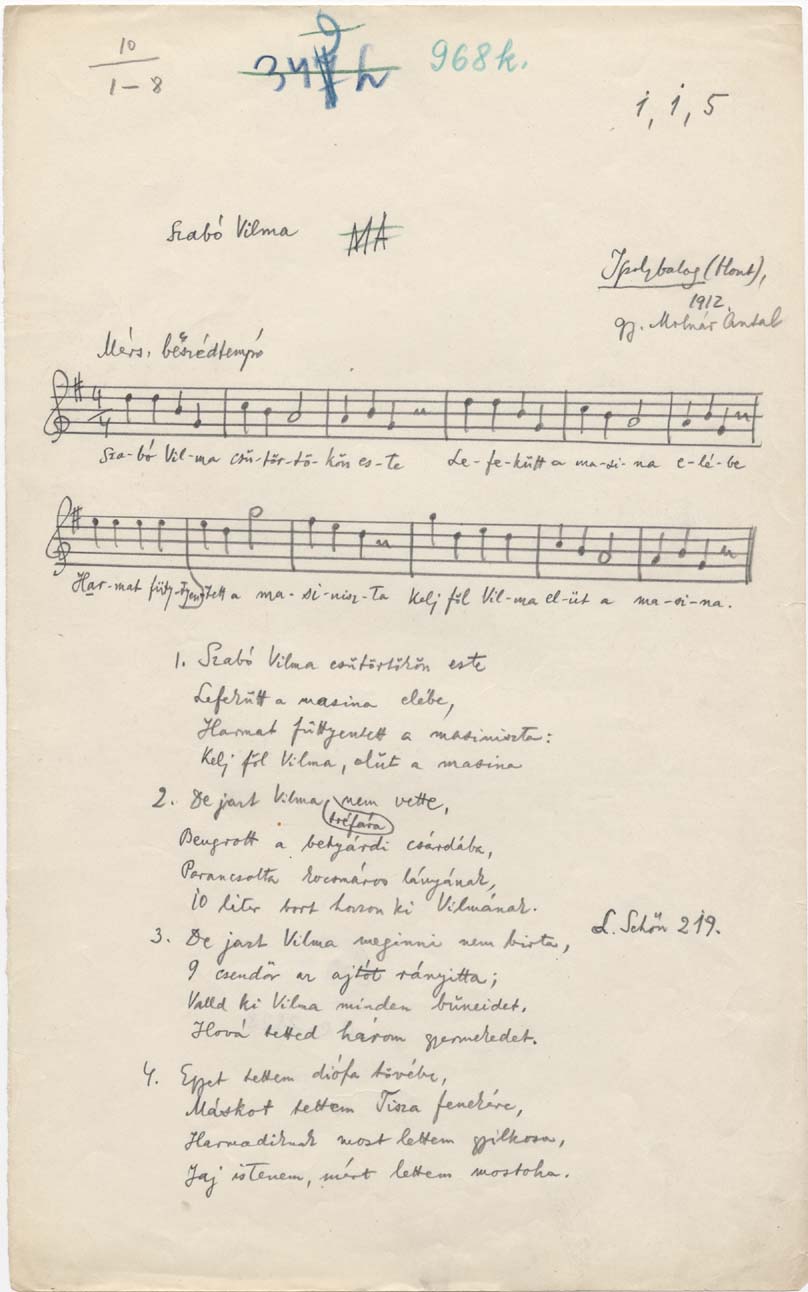 10
1-8
968k.
1, 1, 5
Szabó Vilma MA
Ipolybalog (Hont),
1912.
gy. Molnár Antal
Mérs. beszédtempó
4
4
Sza-bó Vil-ma csü-tör-tö-kön es-te Le-fe-kütt a ma-si-na e-lé-be
Har-mat fütty-tyen-tett a ma-si-nisz-ta Kelj föl Vil-ma el-üt a ma-si-na.
1. Szabó Vilma csütörtökön este
Lefekütt a masina elébe,
Harmat füttyentett a masiniszta:
Kelj föl Vilma, elüt a masina
2. De jazt Vilma nem vette,
tréfára
Beugrott a betyárdi csárdába,
Parancsolta kocsmáros lányának,
10 liter bort hozzon ki Vilmának.
3. De jazt Vilma meginni nem birta,
9 csendőr az ajtót rányitta;
Valld ki Vilma minden bűneidet,
Hová tetted három gyermekedet.
L. Schön 219.
4. Egyet tettem diófa tövébe,
Máskot tettem Tisza fenekére,
Harmadiknak most lettem gyilkosa,
Jaj istenem, mért lettem mostoha.